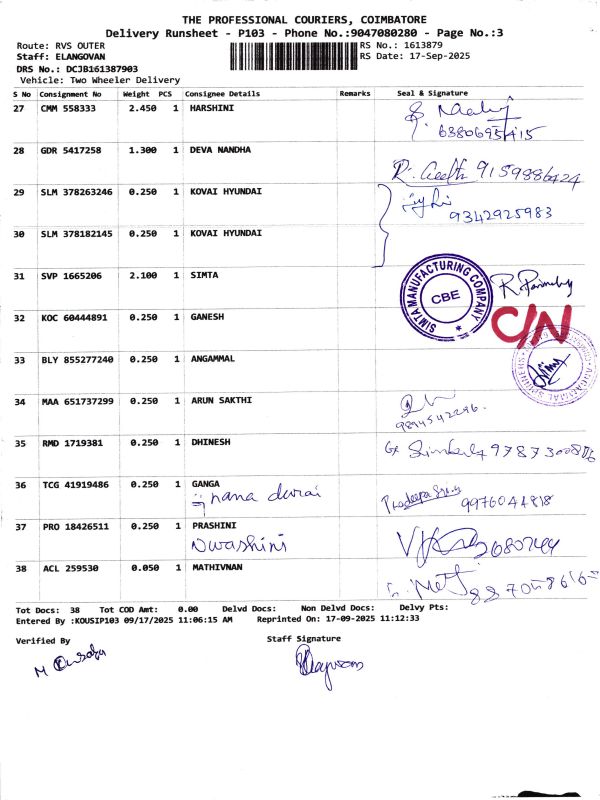 THE PROFESSIONAL COURIERS, COIMBATORE
Delivery Runsheet - P103 - Phone No.:9047080280 - Page No.:3
Route: RVS OUTER RS No.: 1613879
Staff: ELANGOVAN RS Date: 17-Sep-2025
DRS No.: DCJB161387903
Vehicle: Two Wheeler Delivery
S No Consignment No Weight PCS Consignee Details Remarks Seal & Signature
27 CMM 558333 2.450 1 HARSHINI
28 GDR 5417258 1.300 1 DEVA NANDHA
29 SLM 378263246 0.250 1 KOVAI HYUNDAI
9342925983
30 SLM 378182145 0.250 1 KOVAI HYUNDAI
31 SVP 1665206 2.100 1 SIMTA
SIMTA MANUFACTURING COMPANY
CBE
32 KOC 60444891 0.250 1 GANESH C/N
33 BLY 855277240 0.250 1 ANGAMMAL
34 MAA 651737299 0.250 1 ARUN SAKTHI
35 RMD 1719381 0.250 1 DHINESH
36 TCG 41919486 0.250 1 GANGA
nana durai 9976044818
37 PRO 18426511 0.250 1 PRASHINI
38 ACL 259530 0.050 1 MATHIVNAN
Tot Docs: 38 Tot COD Amt: 0.00 Delvd Docs: Non Delvd Docs: Delvy Pts:
Entered By :KOUSIP103 09/17/2025 11:06:15 AM Reprinted On: 17-09-2025 11:12:33
Verified By Staff Signature